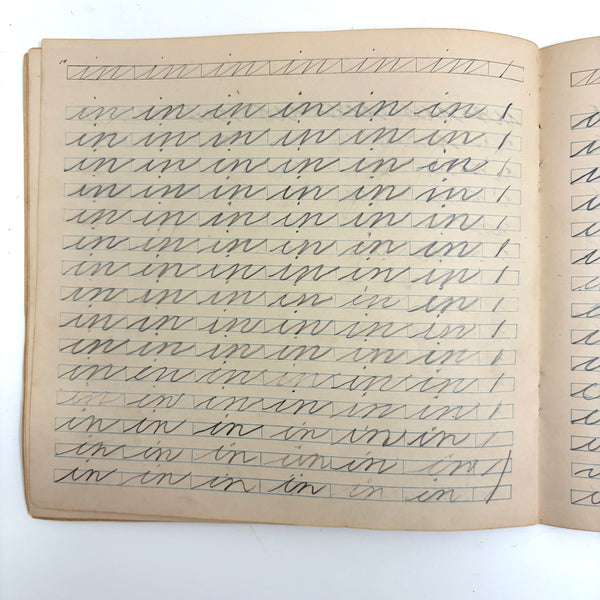 in in in in in in
in in in in in in
in in in in in in
in in in in in in
in in in in in in
in in in in in in
in in in in in in
in in in in in in
in in in in in in
in in in in in in
in in in in in in
in en in in in in
in in in in in in
in in in in in in
in in in in in in
in in in in in in